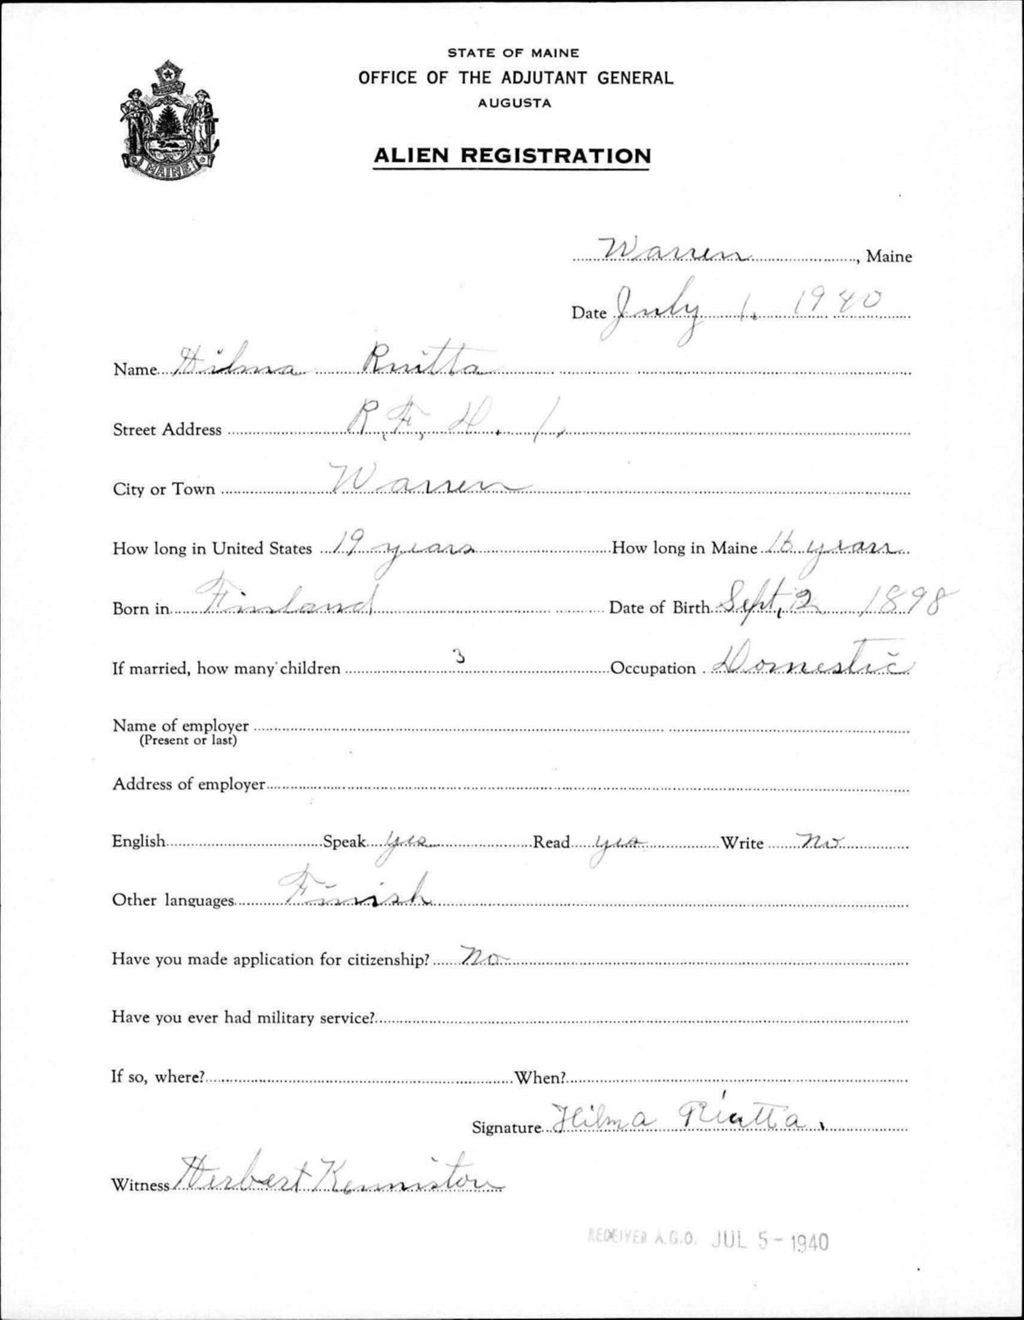 STATE OF MAINE
OFFICE OF THE ADJUTANT GENERAL
AUGUSTA
ALIEN REGISTRATION
MAINE
Warren, Maine
Date July 1, 1940
Name Hilma Ruitta
Street Address R.F.D. 1.
City or Town Warren
How long in United States 19 years How long in Maine 16 years
Born in Finland Date of Birth Sept, 2 1898
If married, how many children 3 Occupation Domestic
Name of employer
(Present or last)
Address of employer
English Speak yes Read yes Write no
Other languages Finish
Have you made application for citizenship? No
Have you ever had military service?
If so, where? When?
Signature Hilma Riutta.
Witness Herbert Kenniston
RECEIVED A.G.O. JUL 5 - 1940